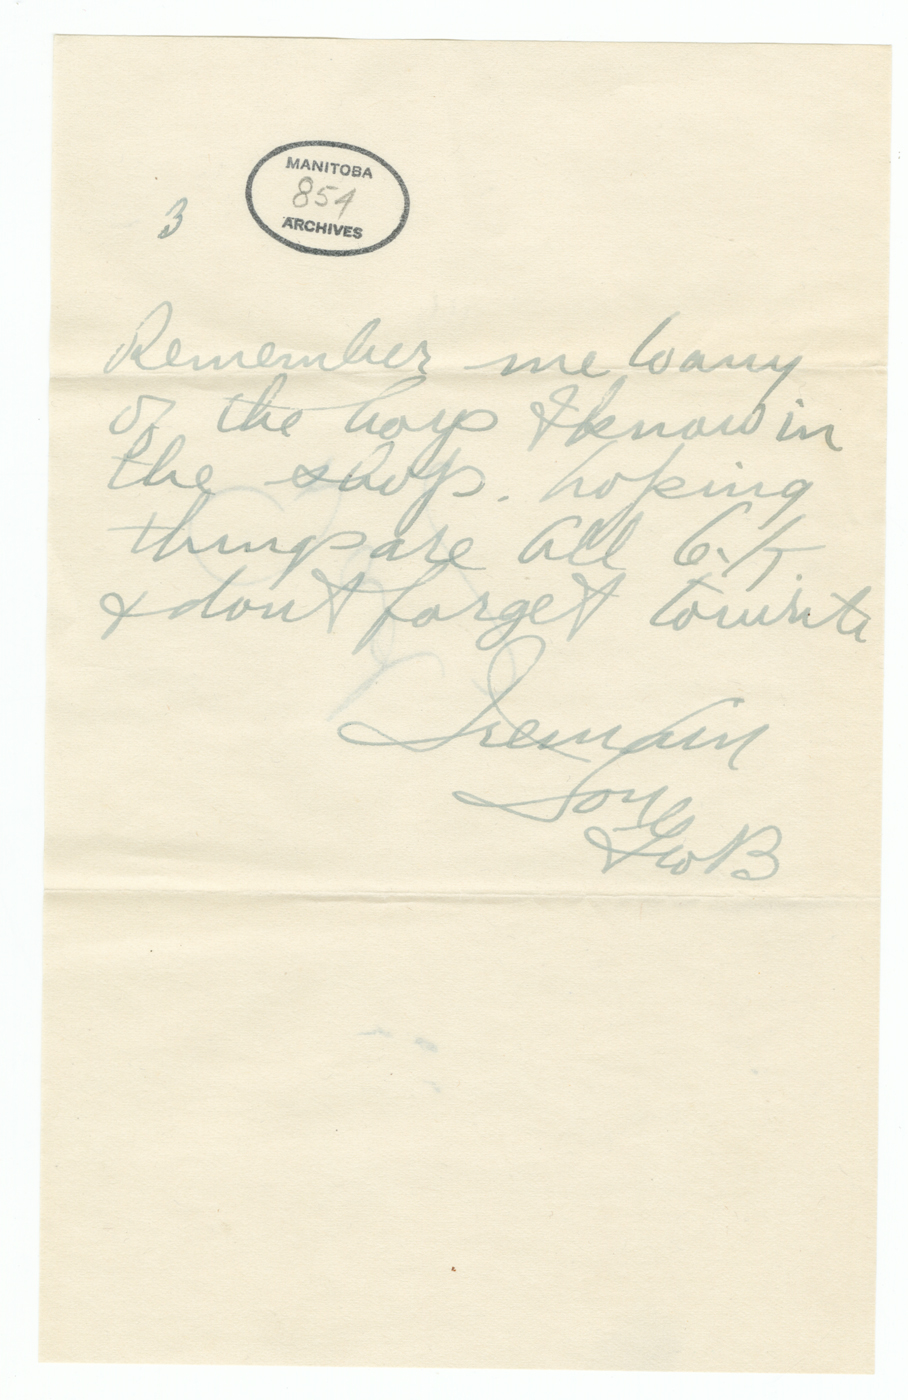 MANITOBA
854
ARCHIVES
3
Remember me to any
of the boys I know in
the shop. hoping
things are all O.K.
& dont forget to write
I remain
Son
Geo B